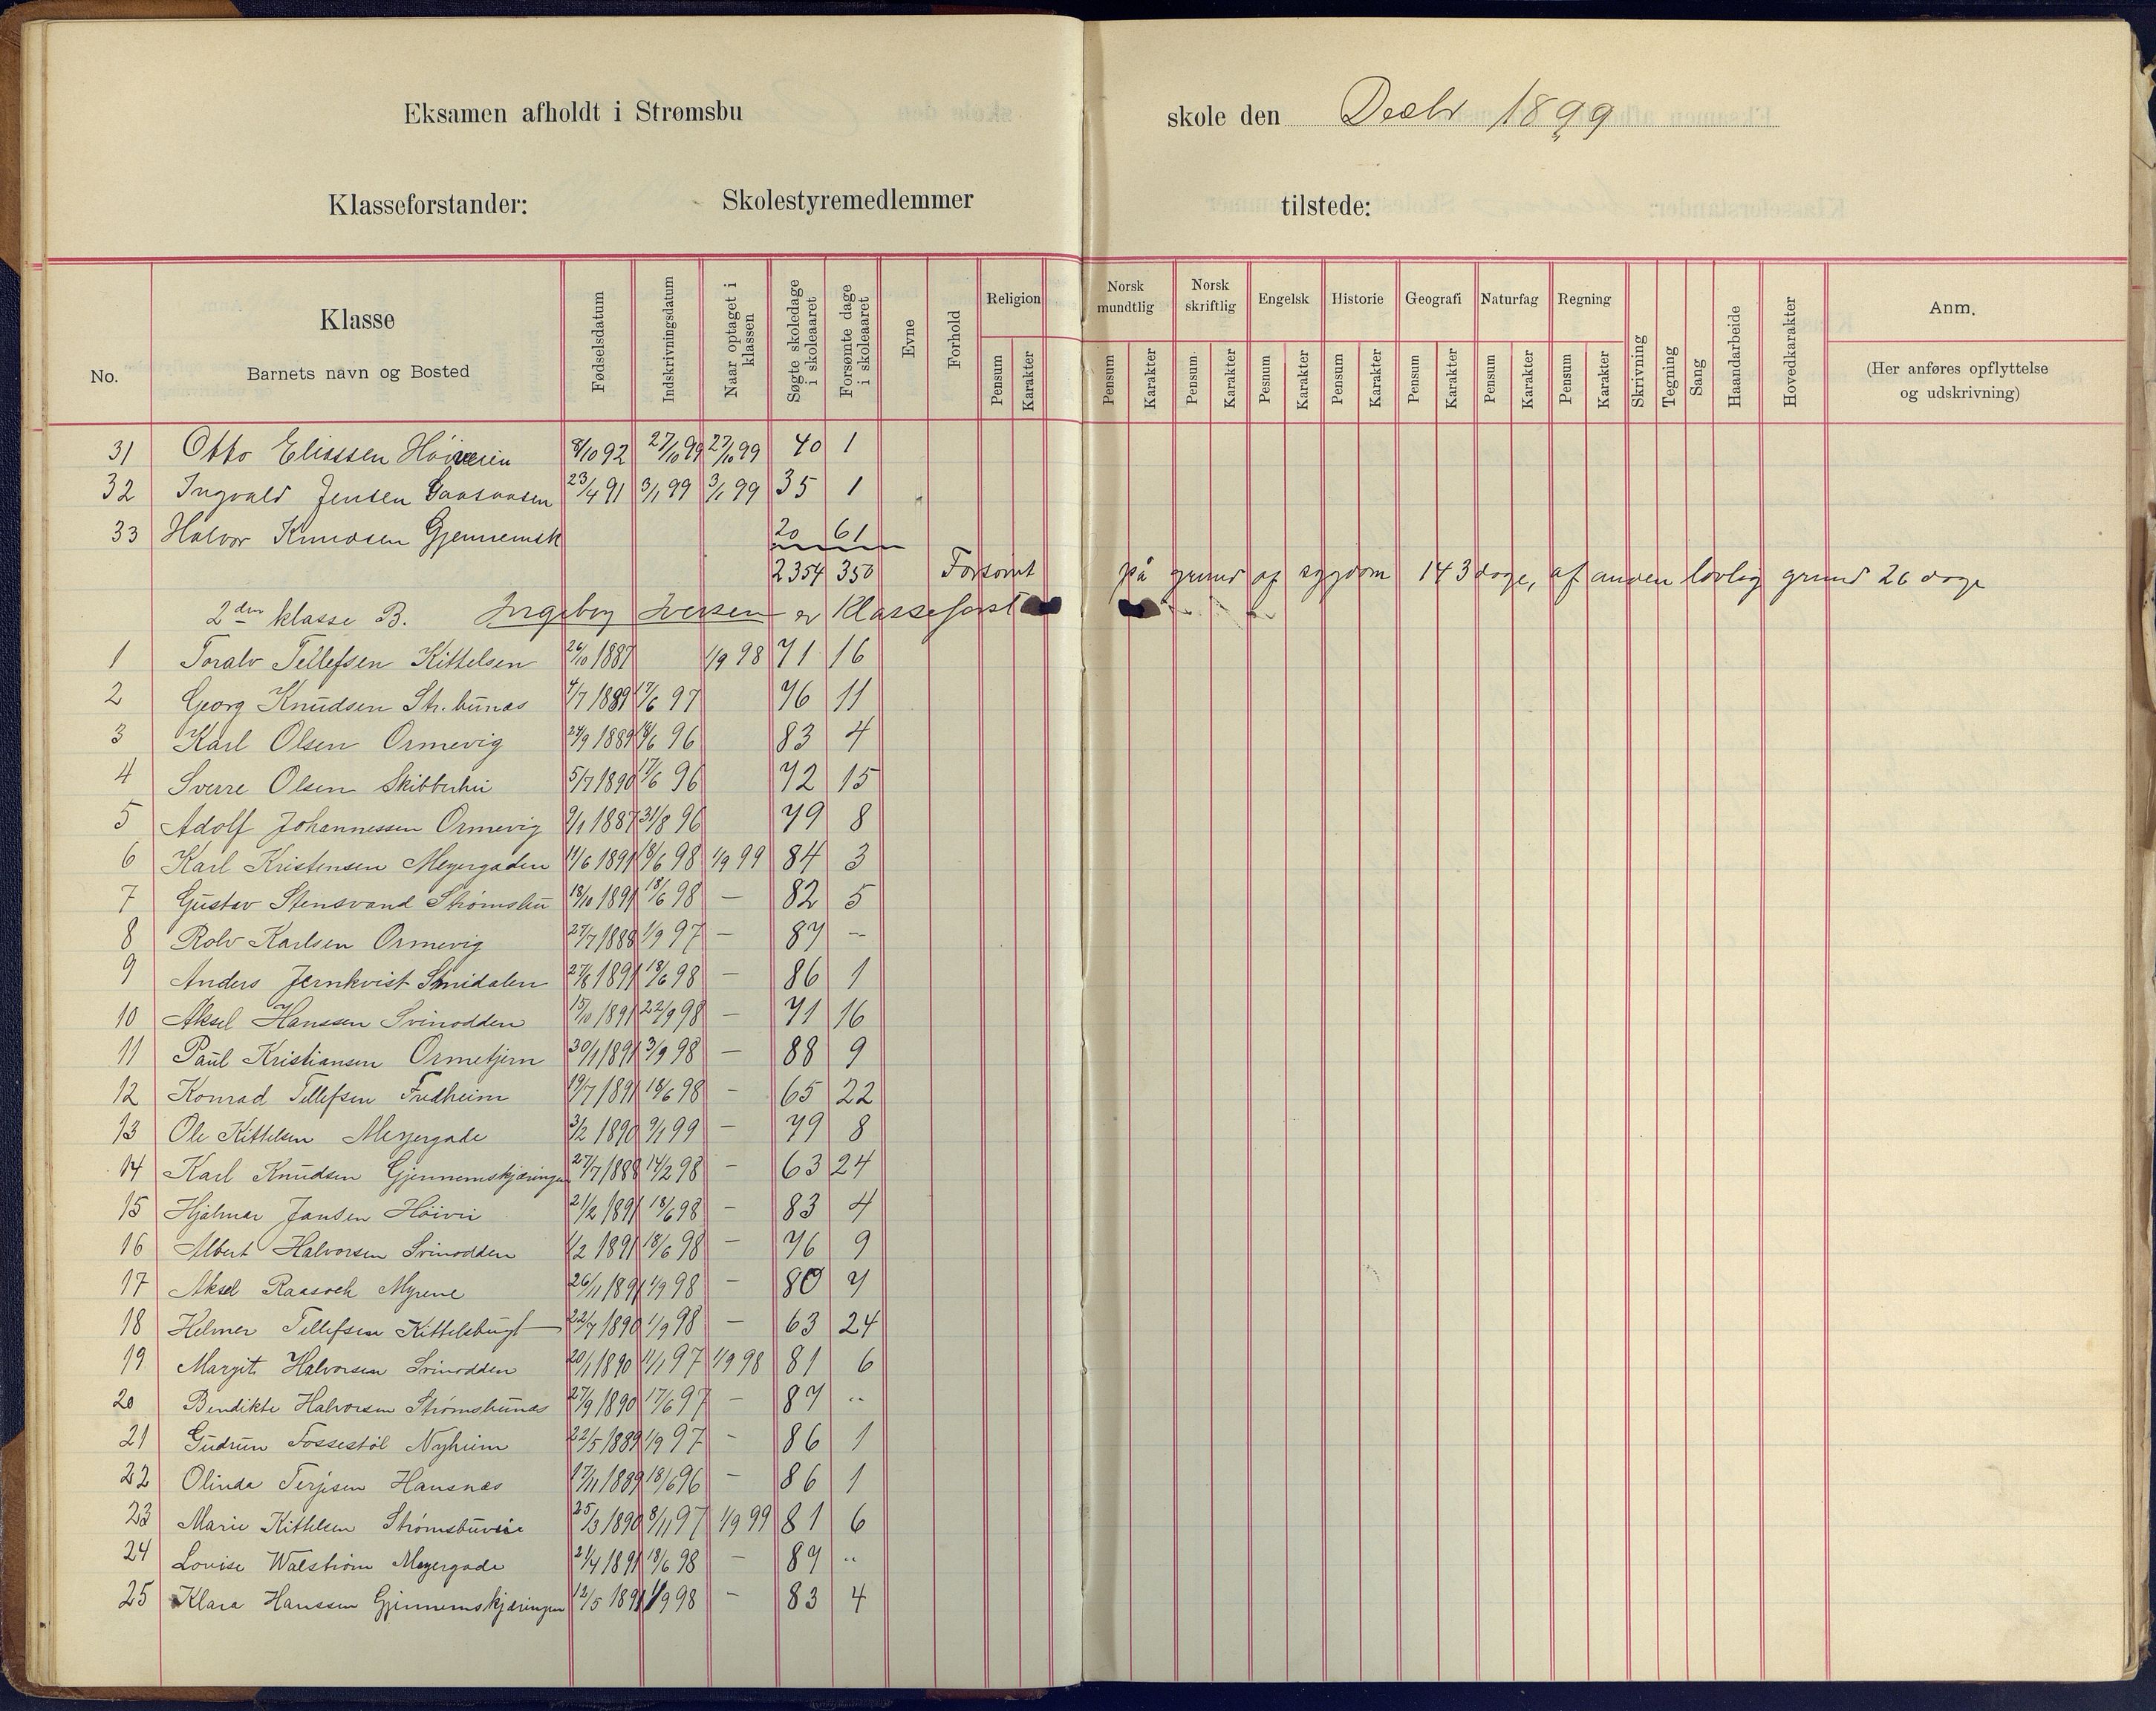 Eksamen afholdt i Strømsbu skole den Decbr 1899
Klasseforstander: Skolestyremedlemmer tilstede:
No. Klasse Barnets navn og Bosted Fødselsdatum Indskrivningsdatum Naar optaget i klassen Søgte skoledage i skoleaaret Forsømte dage i skoleaaret Evne Forhold Religion Pensum Karakter Norsk mundtlig Pensum Karakter Norsk skriftlig Pensum Karakter Engelsk Pesnum Karakter Historie Pensum Karakter Geografi Pensum Karakter Naturfag Pensum Karakter Regning Pensum Karakter Skrivning Tegning Sang Haandarbeide Hovedkarakter Anm. (Her anføres opflyttelse og udskrivning)
31 Otto Eliassen 8/10 92 27/10 99 27/10 99 40 1
32 Ingvald Jensen 23/4 91 3/1 99 3/1 99 35 1
33 Halvor Knudsen Gjennemsk 20 61
2354 350 Forsømt på grund af sygdom 143 dage, af anden lovlig grund 26 dage
2den klasse B. Ingeborg Iversen er Klasseforst
1 Toralv Tellefsen Kittelsen 26/10 1887 1/9 98 71 16
2 Georg Knudsen Str.bunæs 4/7 1889 17/6 97 76 11
3 Karl Olsen Ormevig 24/9 1889 18/6 96 83 4
4 Sverre Olsen Skibberhei 5/7 1890 17/6 96 72 15
5 Adolf Johannessen Ormevig 9/1 1887 31/8 96 79 8
6 Karl Kristensen Meyergaden 11/6 1891 18/6 98 1/9 99 84 3
7 Gustav Stensvand Strømsbu 18/10 1891 18/6 98 — 82 5
8 Rolv Karlsen Ormevig 27/7 1888 1/9 97 — 87 --
9 Anders Jernkvist Smidalen 27/8 1891 18/6 98 — 86 1
10 Aksel Hanssen Svinodden 15/10 1891 22/9 98 — 71 16
11 Paul Kristiansen Ormetjern 30/1 1891 3/9 98 — 88 9
12 Konrad Tellefsen Fredheim 19/7 1891 18/6 98 - 65 22
13 Ole Kittelsen Meyergade 3/2 1890 9/1 99 - 79 8
14 Karl Knudsen Gjennemskjæringen 27/7 1888 14/2 98 - 63 24
15 Hjalmar Jansen Höivei 21/2 1891 18/6 98 - 83 4
16 Albert Halvorsen Svinodden 1/2 1891 18/6 98 - 76 9
17 Aksel Raasock Myrene 26/11 1891 1/9 98 - 80 7
18 Helmer Tellefsen Kittelsbugt 22/7 1890 1/9 98 - 63 24
19 Margit Halvorsen Svinodden 20/1 1890 11/1 97 1/9 98 81 6
20 Bendikte Halvorsen Strømsbunæs 27/9 1890 17/6 97 - 87 --
21 Gudrun Fossestöl Nyheim 22/5 1889 1/9 97 - 86 1
22 Olinda Terjesen Hansnæs 17/11 1889 18/6 96 - 86 1
23 Marie Kittelsen Strömsbuveie 25/3 1890 8/11 97 1/9 99 81 6
24 Lovise Walström Meyergade 21/4 1891 18/6 98 - 87 --
25 Klara Hanssen Gjennemskjæringen 12/5 1891 1/9 98 - 83 4